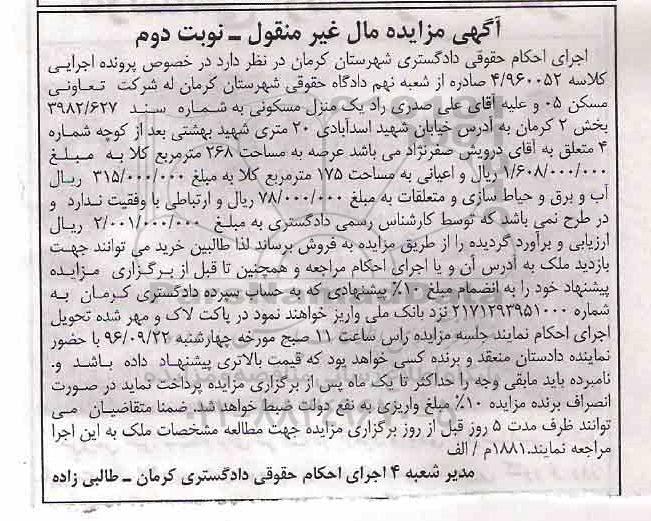 آگهی مزایده مال غیر منقول ــ نوبت دوم
اجرای احکام حقوقی دادگستری شهرستان کرمان در نظر دارد در خصوص پرونده اجرایی
کلاسه ۴/۹۶۰۰۵۲ صادره از شعبه نهم دادگاه حقوقی شهرستان کرمان له شرکت تعـاونی
مسکن ۰۵ و علیه آقای علی صدری راد یک منزل مسکونی به شمـاره سنـد ۳۹۸۲/۶۲۷
بخش ۲ کرمان به آدرس خیابان شهید اسدآبادی ۲۰ متری شهید بهشتی بعد از کوچه شماره
۴ متعلق به آقای درویش صفرنژاد می باشد عرصه به مساحت ۲۶۸ مترمربع کلا به مبـلغ
۱/۶۰۸/۰۰۰/۰۰۰ ریال و اعیانی به مساحت ۱۷۵ مترمربع کلا به مبلغ ۳۱۵/۰۰۰/۰۰۰ ریـال
آب و برق و حیاط سازی و متعلقات به مبلغ ۷۸/۰۰۰/۰۰۰ ریال و ارتباطی با وقفیت نـدارد و
در طرح نمی باشد که توسط کارشناس رسمی دادگستری به مبلغ ۲/۰۰۱/۰۰۰/۰۰۰ ریـال
ارزیابی و برآورد گردیده را از طریق مزایده به فروش برساند لذا طالبین خرید می توانند جهـت
بازدید ملک به آدرس آن و یا اجرای احکام مراجعه و همچنین تا قبل از بـرگـزاری مـزایـده
پیشنهاد خود را به انضمام مبلغ ۱۰٪ پیشنهادی که به حساب سپرده دادگستری کـرمـان بـه
شماره ۲۱۷۱۲۹۳۹۵۱۰۰۰ نزد بانک ملی واریز خواهند نمود در پاکت لاک و مهر شده تحویل
اجرای احکام نمایند جلسه مزایده راس ساعت ۱۱ صبح مورخه چهارشنبه ۹۶/۰۹/۲۲ با حضور
نماینده دادستان منعقد و برنده کسی خواهد بود که قیمت بالاتری پیشنهـاد داده باشـد و.
نامبرده باید مابقی وجه را حداکثر تا یک ماه پس از برگزاری مزایده پرداخت نماید در صـورت
انصراف برنده مزایده ۱۰٪ مبلغ واریزی به نفع دولت ضبط خواهد شد. ضمنا متقاضیـان مـی
توانند ظرف مدت ۵ روز قبل از روز برگزاری مزایده جهت مطالعه مشخصات ملک به این اجرا
مراجعه نمایند.۱۸۸۱م / الف
مدیر شعبه ۴ اجرای احکام حقوقی دادگستری کرمان ــ طالبی زاده